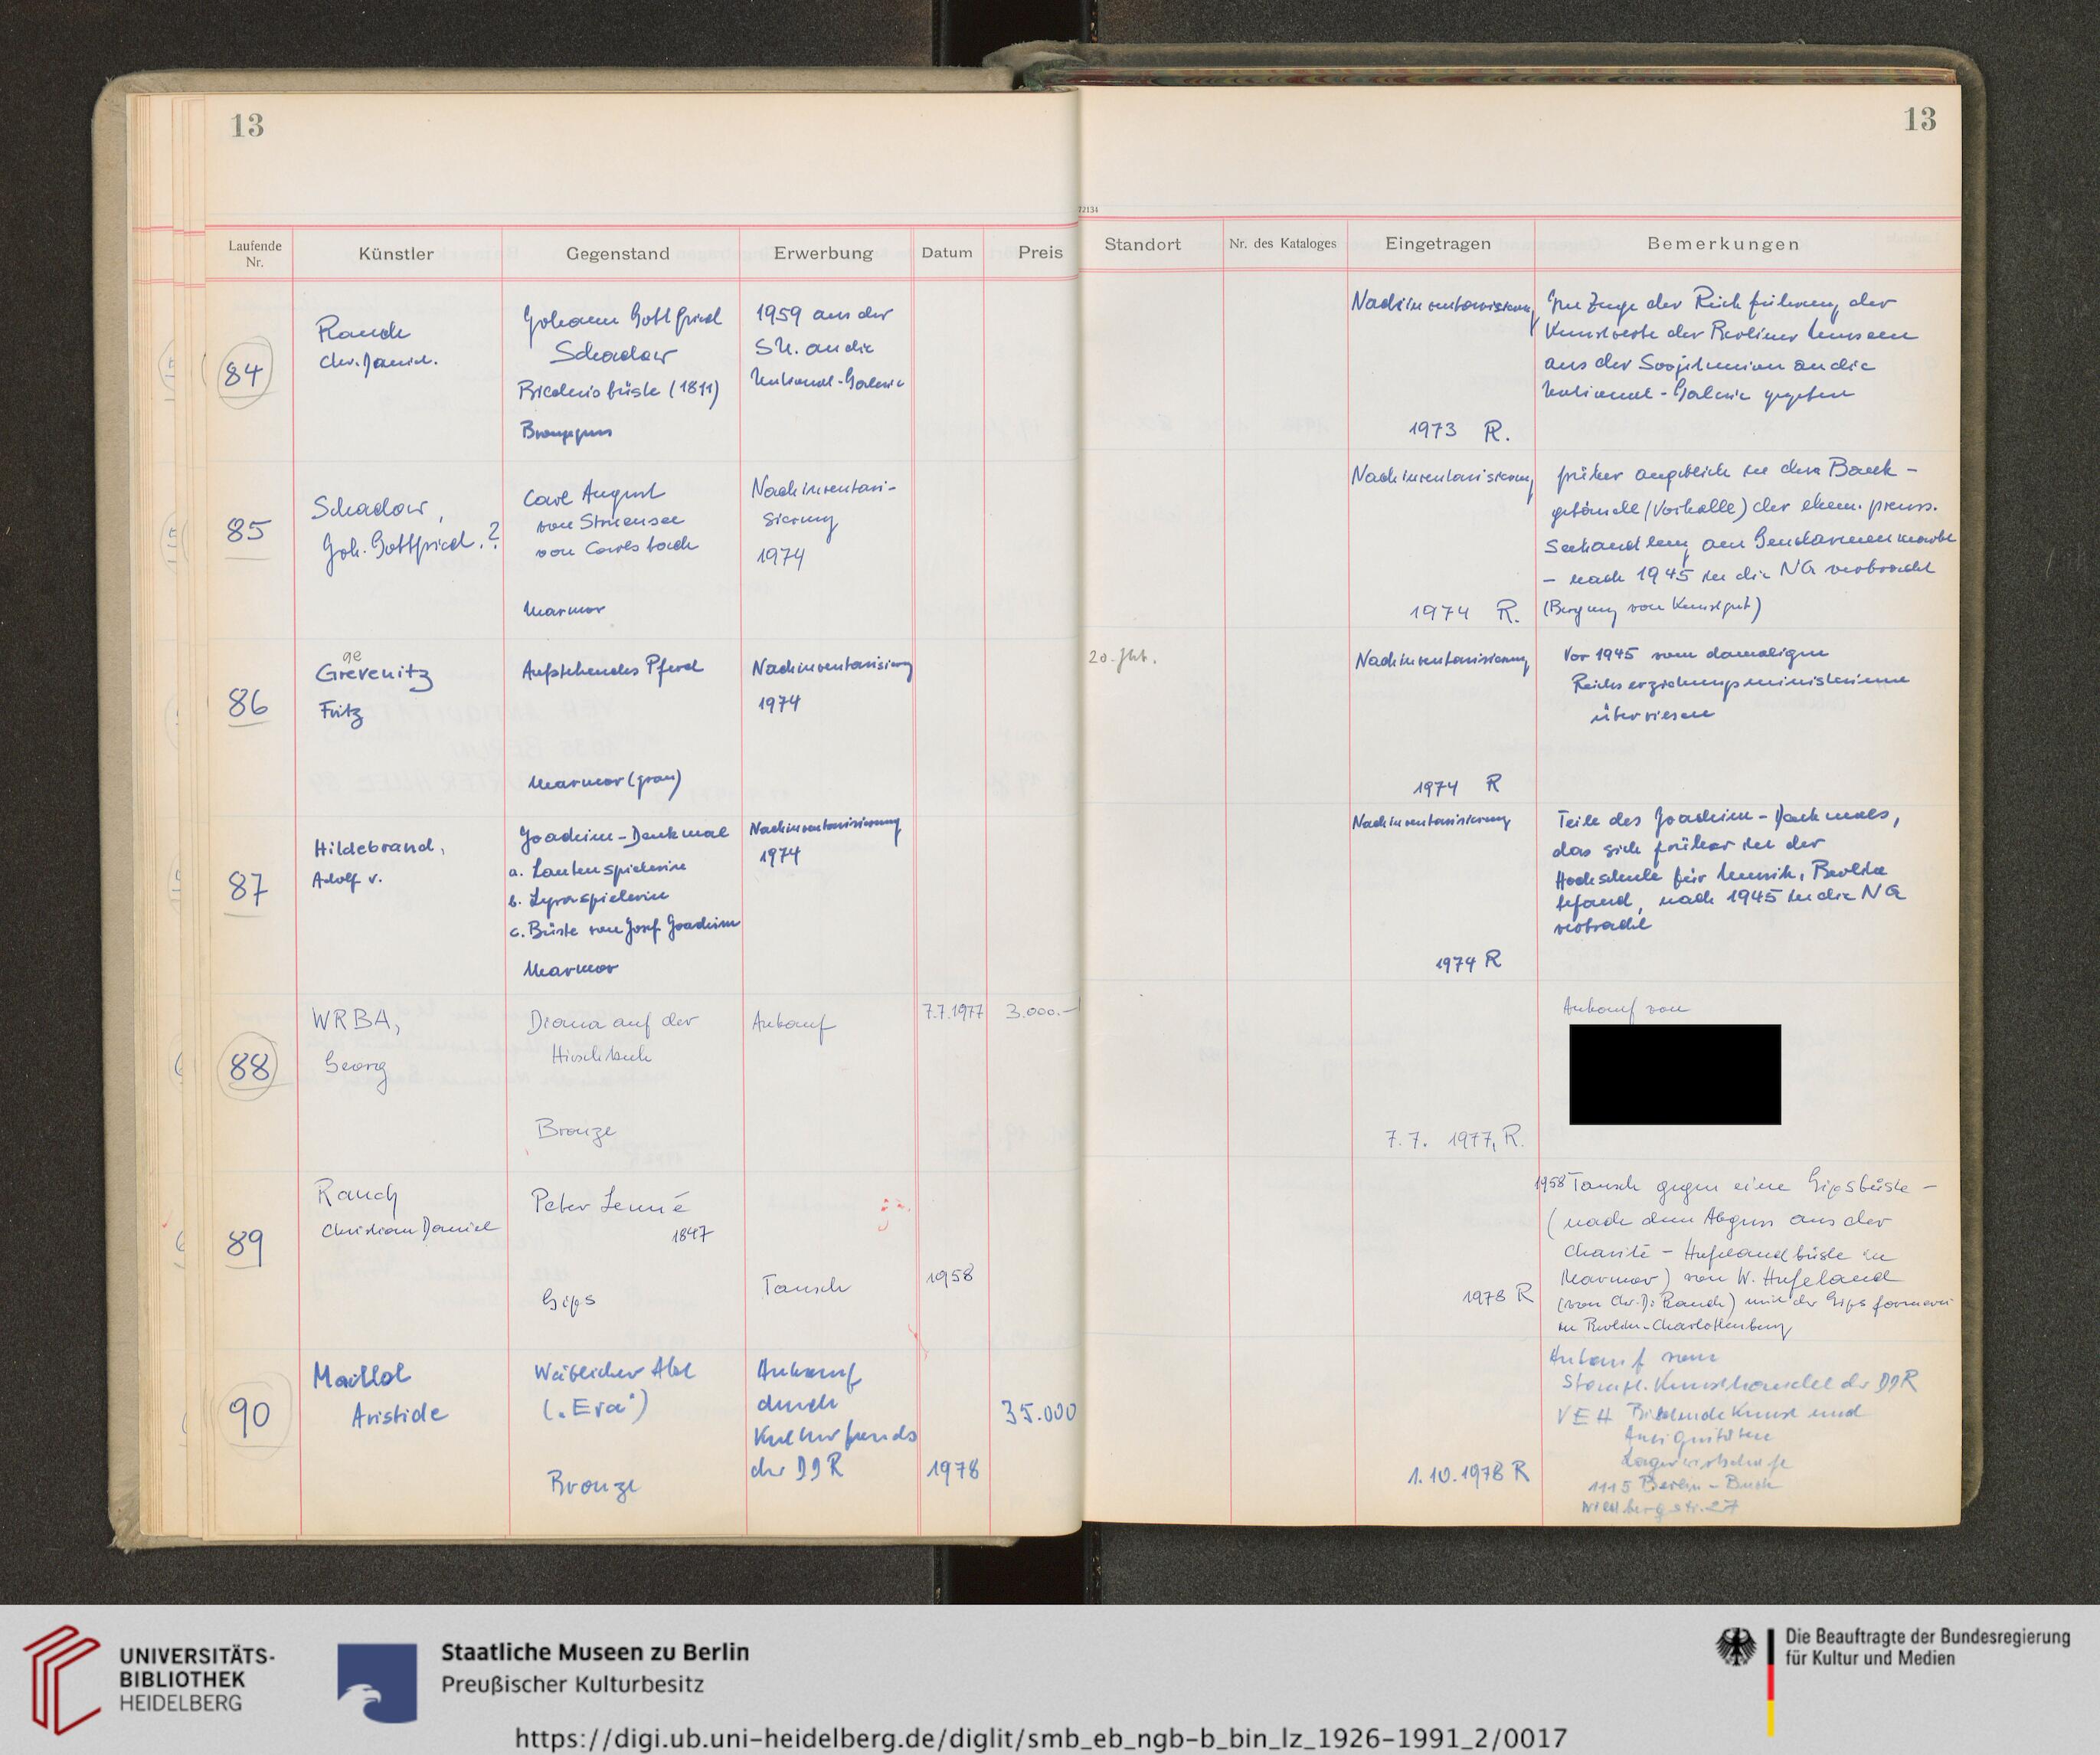 13
13
72134
Laufende Nr.
Künstler
Gegenstand
Erwerbung
Datum
Preis
Standort
Nr. des Kataloges
Eingetragen
Bemerkungen
84
Rauch
Chr. Daniel.
Johann Gottfried
Schadow
Bildnisbüste (1811)
Bronzeguss
1959 aus der
SU. an die
National-Galerie
Nachinventarisierung
1973 R.
Im Zuge der Rückführung der
Kunstwerke der Berliner Museen
aus der Sowjetunion an die
National-Galerie gegeben
85
Schadow,
Joh. Gottfried.?
Carl August
von Struensee
von Carlsbach
Marmor
Nachinventari-
sierung
1974
Nachinventarisierung
1974 R.
früher angeblich in dem Bank-
gebäude (Vorhalle) der ehem. preuss.
Seehandlung am Gendarmenmarkt
- nach 1945 in die NG verbracht
(Bergung von Kunstgut)
86
ge
Grevenitz
Fritz
Aufstehendes Pferd
Marmor (grau)
Nachinventarisierung
1974
20. Jht.
Nachinventarisierung
1974 R
Vor 1945 vom damaligen
Reichserziehungsministerium
überwiesen
87
Hildebrand,
Adolf v.
Joachim-Denkmal
a. Lautenspielerin
b. Lyraspielerin
c. Büste von Josef Joachim
Marmor
Nachinventarisierung
1974
Nachinventarisierung
1974 R
Teile des Joachim-Denkmals,
das sich früher in der
Hochschule für Musik, Berlin
befand, nach 1945 in die NG
verbracht
88
WRBA,
Georg
Diana auf der
Hirschkuh
Bronze
Ankauf
7.7.1977
3.000.-
7.7. 1977, R.
Ankauf von
89
Rauch
Christian Daniel
Peter Lenné
1847
Gips
Tausch
1958
1978 R
1958 Tausch gegen eine Gipsbüste -
(nach dem Abguss aus der
Charité - Hufelandbüste in
Marmor) von W. Hufeland
(von Chr. D. Rauch) mit der Gipsformerei
in Berlin-Charlottenburg
90
Maillol
Aristide
Weiblicher Akt
("Eva")
Bronze
Ankauf
durch
Kulturfonds
der DDR
1978
35.000
1.10.1978 R
Ankauf vom
Staatl. Kunsthandel der DDR
VEH Bildende Kunst und
Antiquitäten
1115 Berlin-Buch
UNIVERSITÄTS-
BIBLIOTHEK
HEIDELBERG
Staatliche Museen zu Berlin
Preußischer Kulturbesitz
Die Beauftragte der Bundesregierung
für Kultur und Medien
https://digi.ub.uni-heidelberg.de/diglit/smb_eb_ngb-b_bin_lz_1926-1991_2/0017